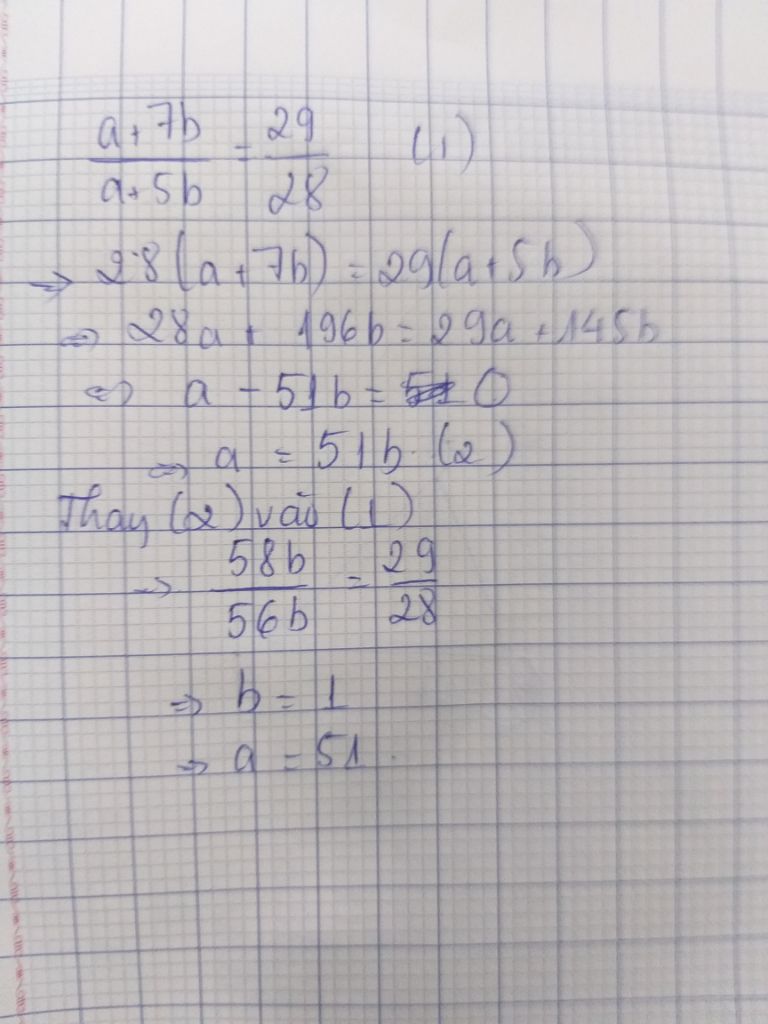 a+7b/a+5b = 29/28 (1)
=> 28(a+7b) = 29(a+5b)
=> 28a + 196b = 29a + 145b
<=> a - 51b = 0
=> a = 51b. (2)
Thay (2) vào (1)
=> 58b/56b = 29/28
=> b = 1
=> a = 51.